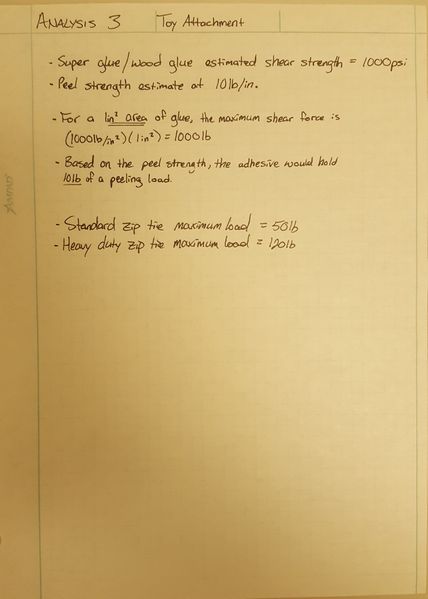 ANALYSIS 3 Toy Attachment
- Super glue/wood glue estimated shear strength = 1000psi
- Peel strength estimate at 10lb/in.
- For a 1in² area of glue, the maximum shear force is
(1000lb/in²)(1in²) = 1000lb
- Based on the peel strength, the adhesive would hold
10lb of a peeling load.
- Standard zip tie maximum load = 50lb
- Heavy duty zip tie maximum load = 120lb